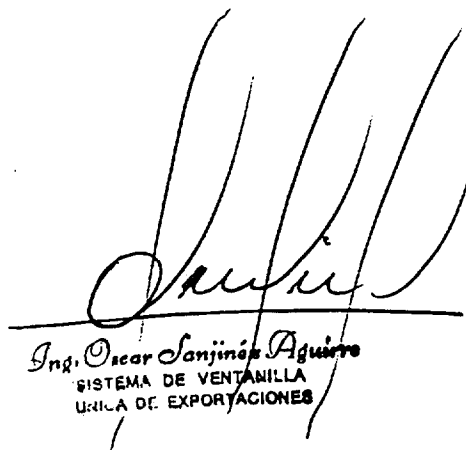 Ing. Oscar Sanjinés Aguirre
SISTEMA DE VENTANILLA
UNICA DE EXPORTACIONES